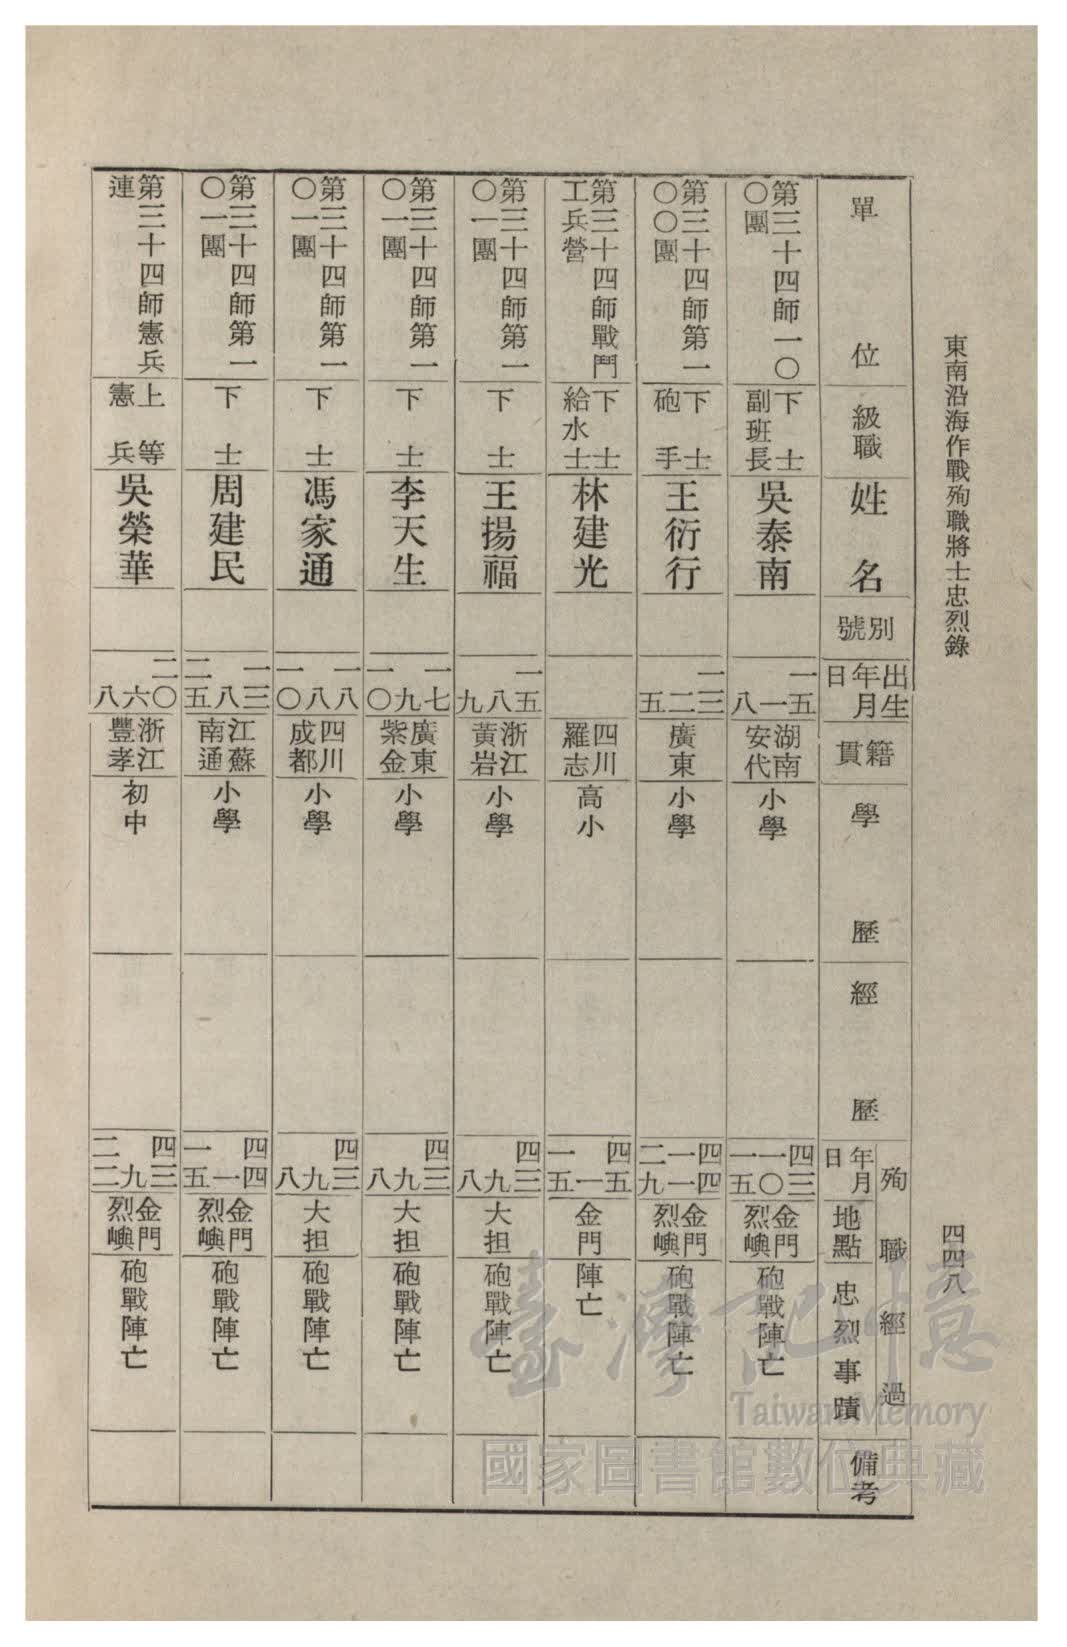 東南沿海作戰殉職將士忠烈錄
四四八
單位
級職
姓名
別號
出生
年月
日
籍貫
學歷
經歷
殉職經過
年月
日
地點
忠烈事蹟
備考
第三十四師一〇
〇團
下士
副班長
吳泰南
一五
一
八
湖南
安代
小學
四三
一〇
一五
金門
烈嶼
砲戰陣亡
第三十四師第一
〇〇團
下士
砲手
王衍行
一三
二
五
廣東
小學
四四
一一
二九
金門
烈嶼
砲戰陣亡
第三十四師戰鬥
工兵營
下士
給水士
林建光
四川
羅志
高小
四五
一
一五
金門
陣亡
第三十四師第一
〇一團
下士
王揚福
一五
八
九
浙江
黃岩
小學
四三
九
八
大担
砲戰陣亡
第三十四師第一
〇一團
下士
李天生
一七
九
一〇
廣東
紫金
小學
四三
九
八
大担
砲戰陣亡
第三十四師第一
〇一團
下士
馮家通
一八
八
一〇
四川
成都
小學
四三
九
八
大担
砲戰陣亡
第三十四師第一
〇一團
下士
周建民
一三
八
二五
江蘇
南通
小學
四四
一
一五
金門
烈嶼
砲戰陣亡
第三十四師憲兵
連
上等
憲兵
吳榮華
二〇
六
八
浙江
豐孝
初中
四三
九
二二
金門
烈嶼
砲戰陣亡
臺灣記憶
Taiwan Memory
國家圖書館數位典藏